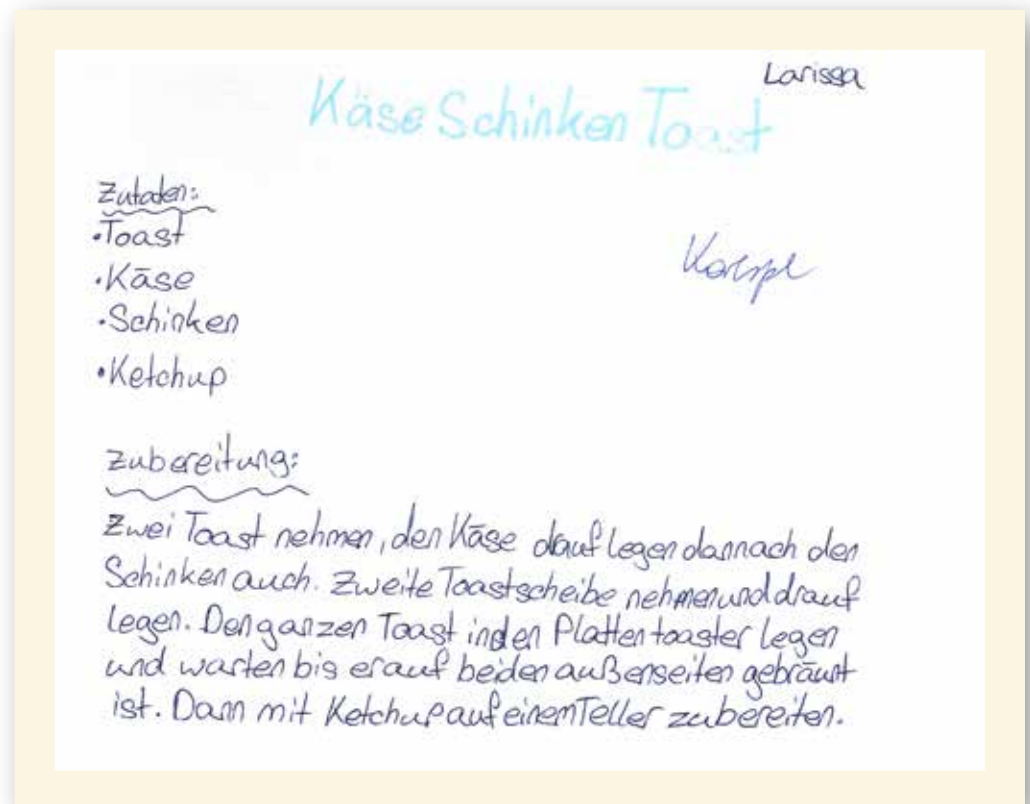 Larissa
Käse Schinken Toast
Zutaten:
•Toast
•Käse
•Schinken
•Ketchup
Zubereitung:
Zwei Toast nehmen, den Käse dauf legen dannach den
Schinken auch. Zweite Toastscheibe nehmen und drauf
legen. Den ganzen Toast in den Plattentoaster legen
und warten bis er auf beiden außenseiten gebräunt
ist. Dann mit Ketchup auf einem Teller zubereiten.